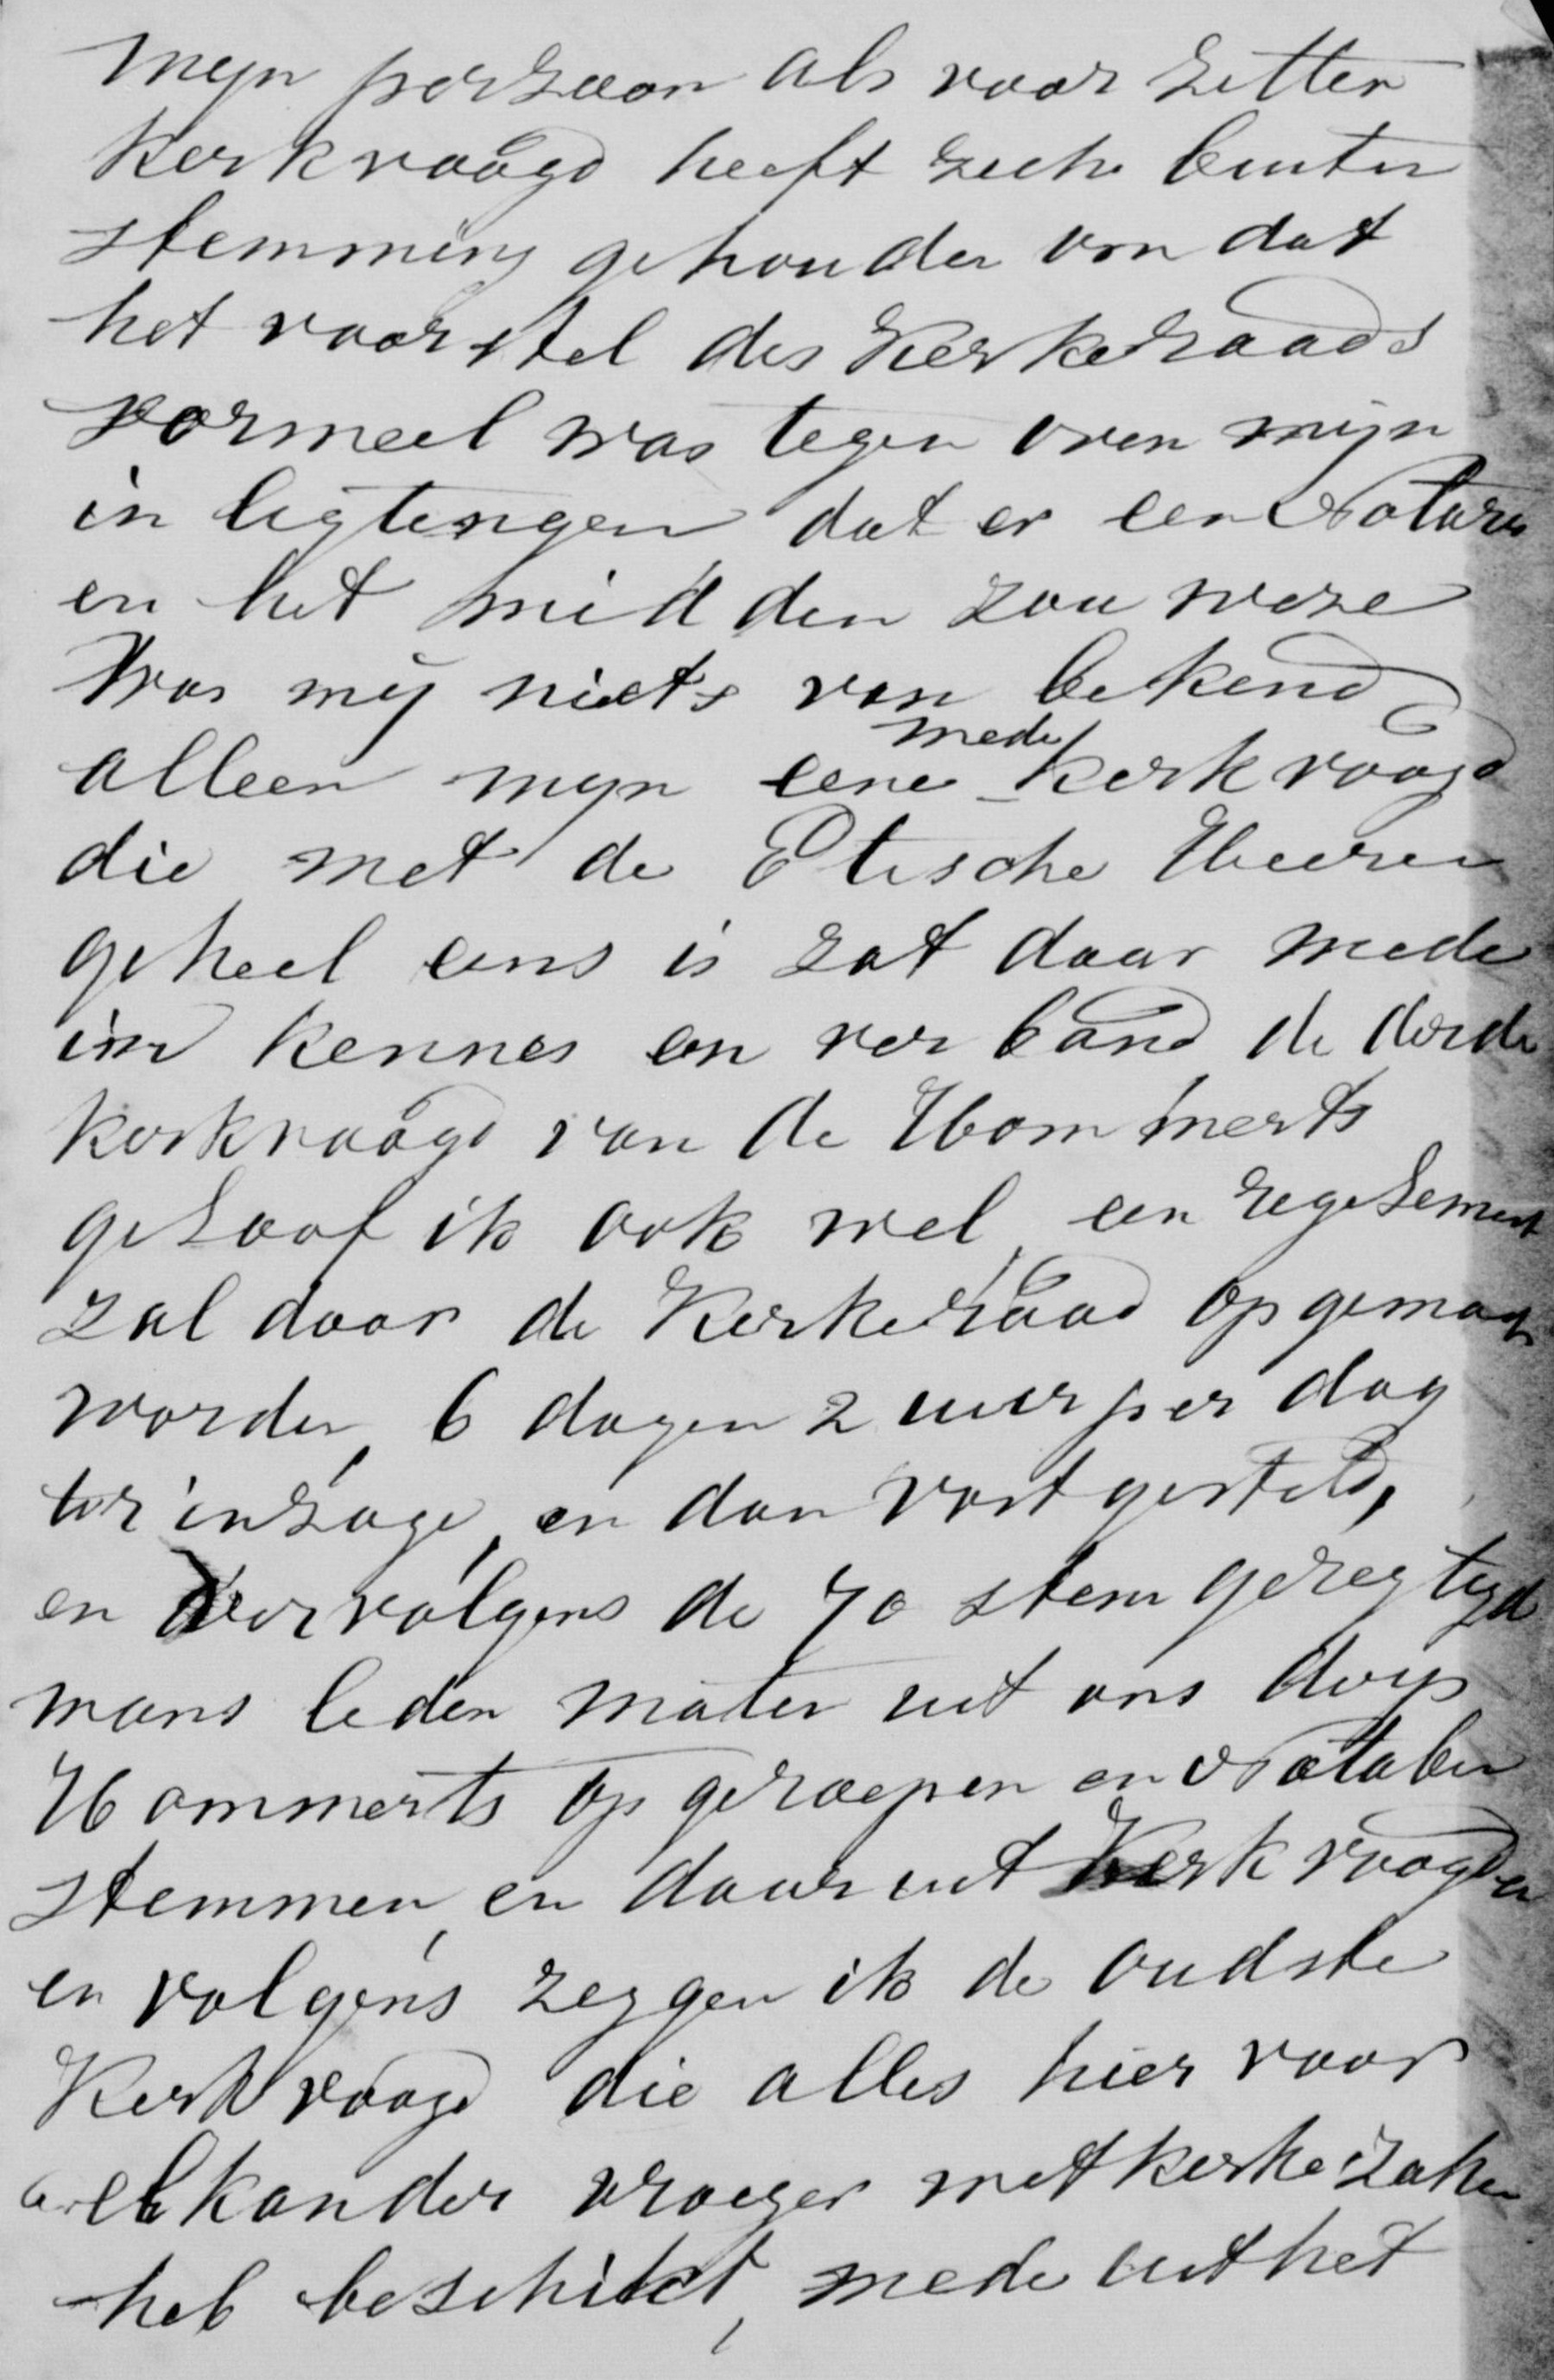 Mijn perzoon als voor zitter
Kerkvoogd heeft zich buiten
stemming gehouden om dat
het voor stel des Kerkeraads
vormeel was tegen over mijn
in ligtengen dat er een Notaris
en het midden zou weze
Was mij niets van bekend
alleen mijn eene mede kerkvoogd
die met de Etische Heeren
geheel eens is zat daar mede
in kennes en ver band de derde
kerkvoogd van de Hommerts
geloof ik ook wel, een regelement
zal door de Kerkeraad op gemaak
worden, 6 dagen 2 uur per dag
ter inzage, en dan vast gesteld,
en vervolgens de 70 stem geregtigd
mans leden maten uit ons dorp
Hommerts op geroepen en Notabelen
stemmen, en daar uit Kerkvoogden
en volgens zeggen ik de oudste
Kerkvoogd die alles hier voor
elkander vroeger met kerke zaken
heb beschikt, mede uit het